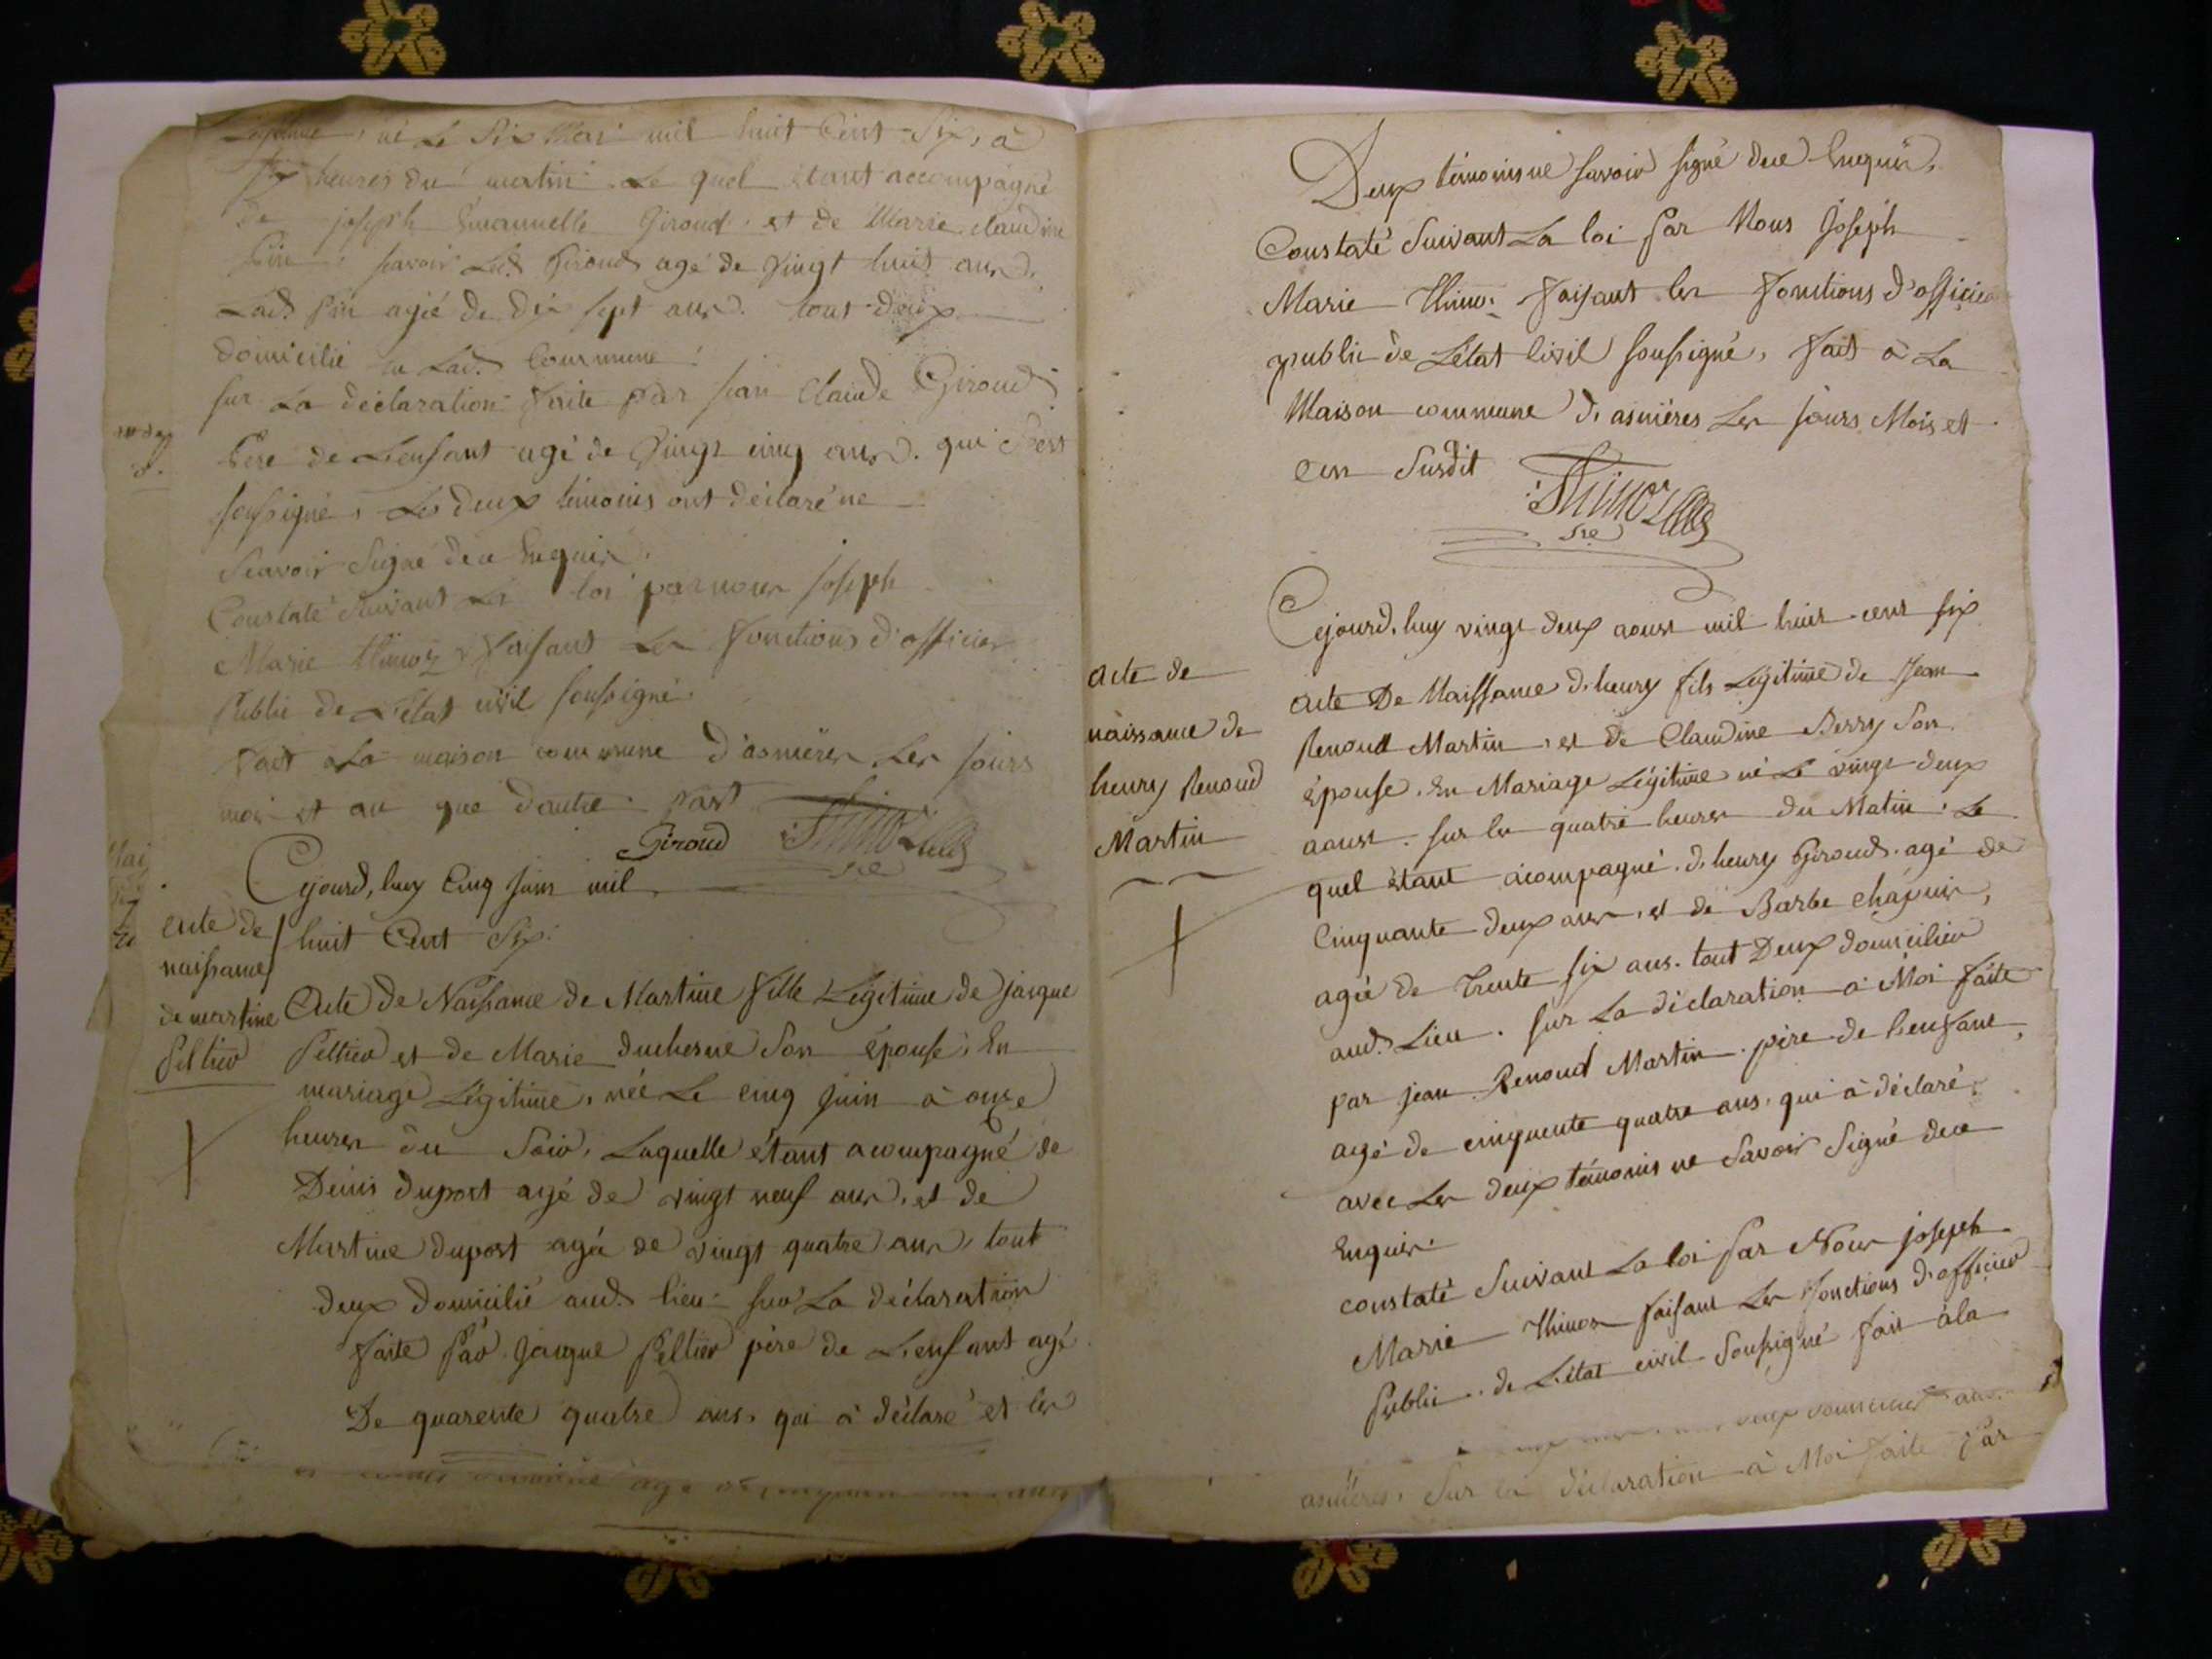 Légitime, né Le Six Mai mil huit Cent Six, à
Six heures du matin. Le quel étant accompagné
de joseph Emanuelle Giroud. et de Marie claudine
savoir Led. Giroud agé de Vingt huit ans,
Lad. agée de dix sept ans. tout deux
domicilié en Lad. Commune.
sur La déclaration faite par jean Claude Giroud
Pere de L'enfant agé de Vingt cinq ans. qui s'est
soussigné, Les deux témoins ont déclaré ne
Scavoir Signé de ce Enquis.
Constaté Suivant La loi par nous joseph
Marie thimoz faisant Les fonctions d'officier
Public de L'état civil soussigné
fait à La maison commune d'asnières Les jours
mois et an que d'autre part
Giroud
Cejourd'huy Cinq juin mil
huit Cent Six.
acte de
naissance
de martine
Peltier
Acte de Naissance de Martine fille Légitime de jacque
Peltier et de Marie duchesne Son épouse, En
mariage Légitime, née Le cinq juin à onze
heures du Soir, Laquelle étant acompagné de
Denis duport agé de vingt neuf ans, et de
Martine duport agée de vingt quatre ans, tout
deux domicilié aud. lieu sur La déclaration
faite Par jacque Peltier père de L'enfant agé
De quarente quatre ans, qui à déclaré et les
Deux témoins ne savoir signé de ce Enquis.
Constaté Suivant La loi par Nous joseph
Marie thimoz faisant les fonctions d'officier
public de L'état Civil soussigné, fait à La
Maison commune d'asnières Les jours Mois et
an Susdit
Thimoz
Cejourd'huy vingt deux aoust mil huit cent six
acte de
naissance de
henry Renoud
Martin
acte De Naissance d'henry fils Légitime de Jean
Renoud Martin, et de Claudine Berry Son
épouse. En Mariage Légitime né Le vingt deux
aoust. sur les quatre heures du Matin. Le
quel étant acompagné d'henry Giroud. agé de
Cinquante deux ans, et de Barbe chapuis,
agée De Trente six ans. tout Deux domicilier
aud. Lieu. sur La déclaration à Moi faite
par jean Renoud Martin. père de L'enfant,
agé de cinquente quatre ans, qui à déclaré
avec Les deux témoins ne Savoir Signé de ce
Enquis.
constaté Suivant La loi par Nous joseph
Marie thimoz faisant Les fonctions d'officier
Public de L'état civil Soussigné fait à la
asnières. Sur la déclaration à Moi faite par